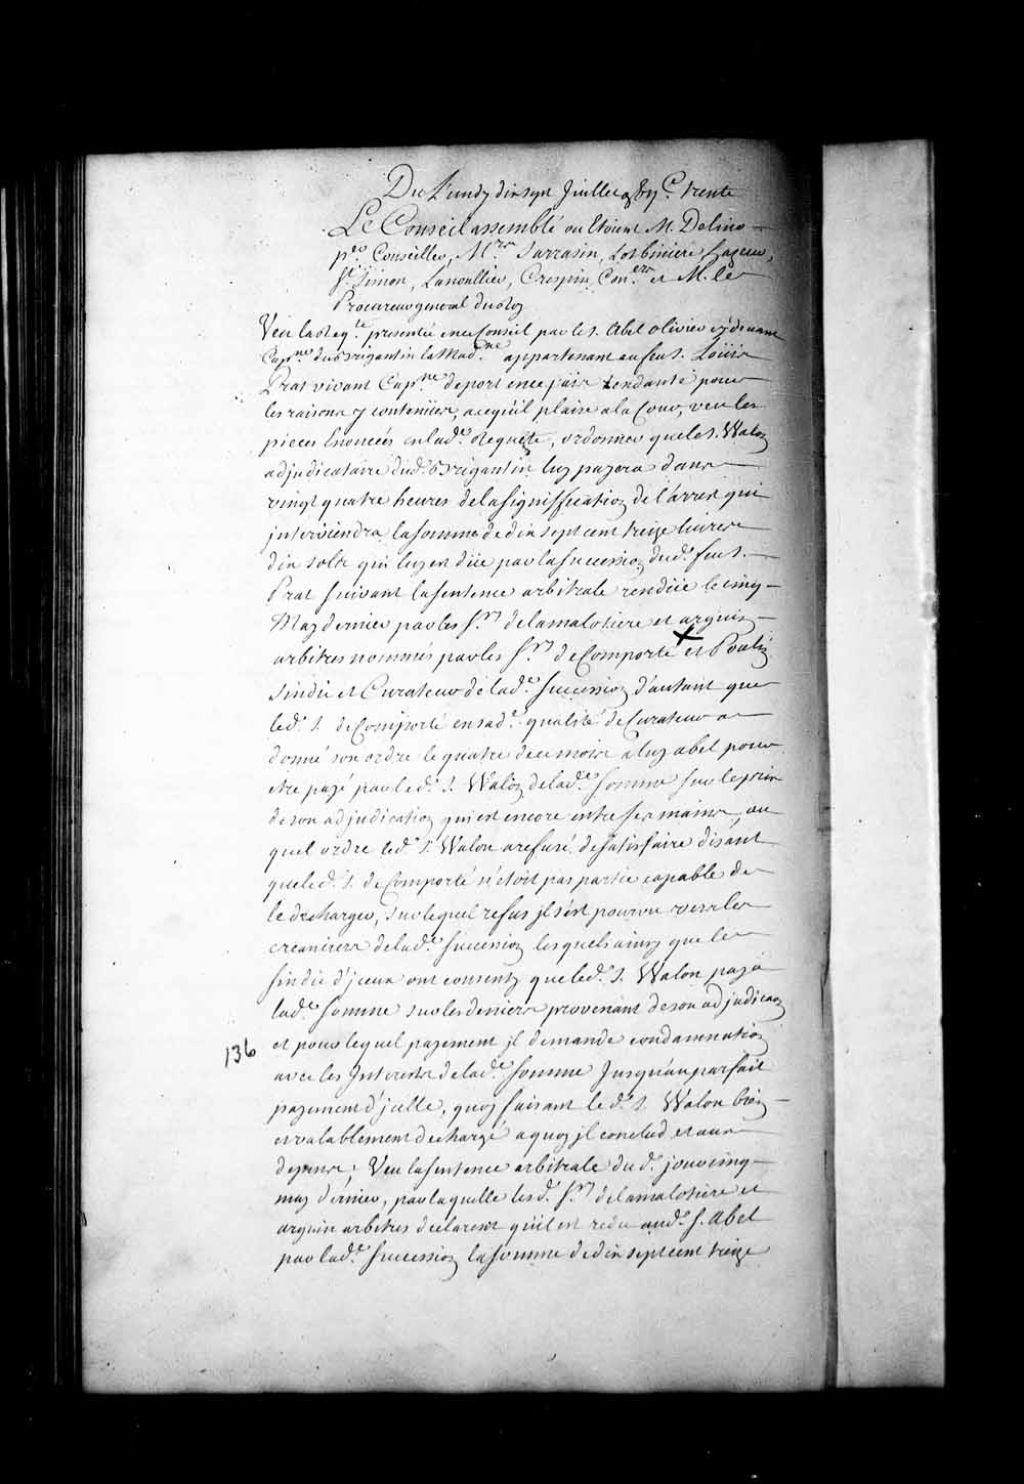 Du Lundy dix sept Juillet 
Le Conseil assemblé ou Etoient M. Delino
p.er Conseiller, M.rs Sarrazin, Lotbiniere, hazeur,
S.t Simon, Lanoullier, Crespin, Con.ers et M. le
Procureur general du Roy
Veu la Req.te presentée en ce Conseil par le s. Abel olivier cydevant
Cap.ne du Brigantin la Mad.ne appartenant au feu s. Loüis
Prat vivant Cap.ne de port en ce païs tendante pour
les raisons y contenües, a ce qu'il plaise a la Cour, veu les
pieces Enoncées en lad.e Requête, ordonner que le s. Walon
adjudicataire dud. Brigantin luy payera dans
vingt quatre heures de la signiffication de l'arrest qui
interviendra la somme de dix sept cent treize livres
dix sols qui luy est düe par la succession dud. feu s.
Prat suivant la sentence arbitrale rendüe le cinq
May dernier par les S.rs de lamalotiere et arguin
arbitres nommés par les S.rs de Comporté et Poulin
sindic et Curateur de lad.e succession d'autant que
led. s. de Comporté en sad.e qualité de Curateur a
donné son ordre le quatre de ce mois a luy abel pour
etre payé par led. s. Walon de lad.e somme sur le prix
de son adjudication qui est encore entre ses mains, au
quel ordre led. s. Walon a refusé de satisfaire disant
que led. s. de Comporté n'étoit pas partie capable de
le decharger, sur lequel refus il s'est pourvu vers les
creanciers de lad.e succession lesquels ainsy que le
sindic d'iceux ont consenty que led. s. Walon paye
lad.e somme sur les deniers provenant de son adjudicaõn
136 et pour lequel payement il demande condamnation
avec les Interests de lad.e somme Jusqu'au parfait
payement d'icelle, quoy faisant led. s. Walon bien
et valablement dechargé a quoy il conclud et aux
depens; Veu la sentence arbitrale dud. jour cinq
may dernier, par laquelle lesd. S.rs de lamalotiere et
arguin arbitres declarent qu'il est redu aud. s. Abel
par lad.e succession la somme de dix sept cent treize